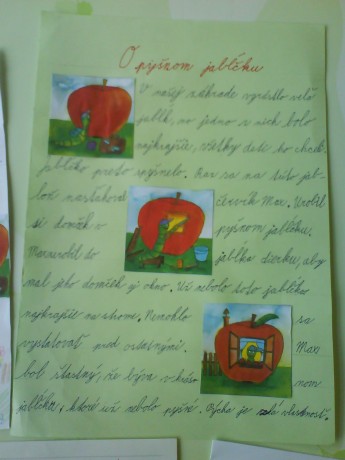 O pyšnom jabĺčku
V našej záhrade vyrástlo veľa
jabĺk, no jedno z nich bolo
najkrajšie, všetky deti ho chceli,
jabĺčko preto spyšnelo. Raz sa na túto jab-
loň nasťahoval červík Max. Urobil
si domček v pyšnom jabĺčku.
Max urobil do jabĺka dierku, aby
mal jeho domček aj okno. Už nebolo toto jabĺčko
najkrajšie na strome. Nemohlo sa
vystatovať pred ostatnými. Max
bol šťastný, že býva v krásnom
jabĺčku, ktoré už nebolo pyšné. Pýcha je zlá vlastnosť.